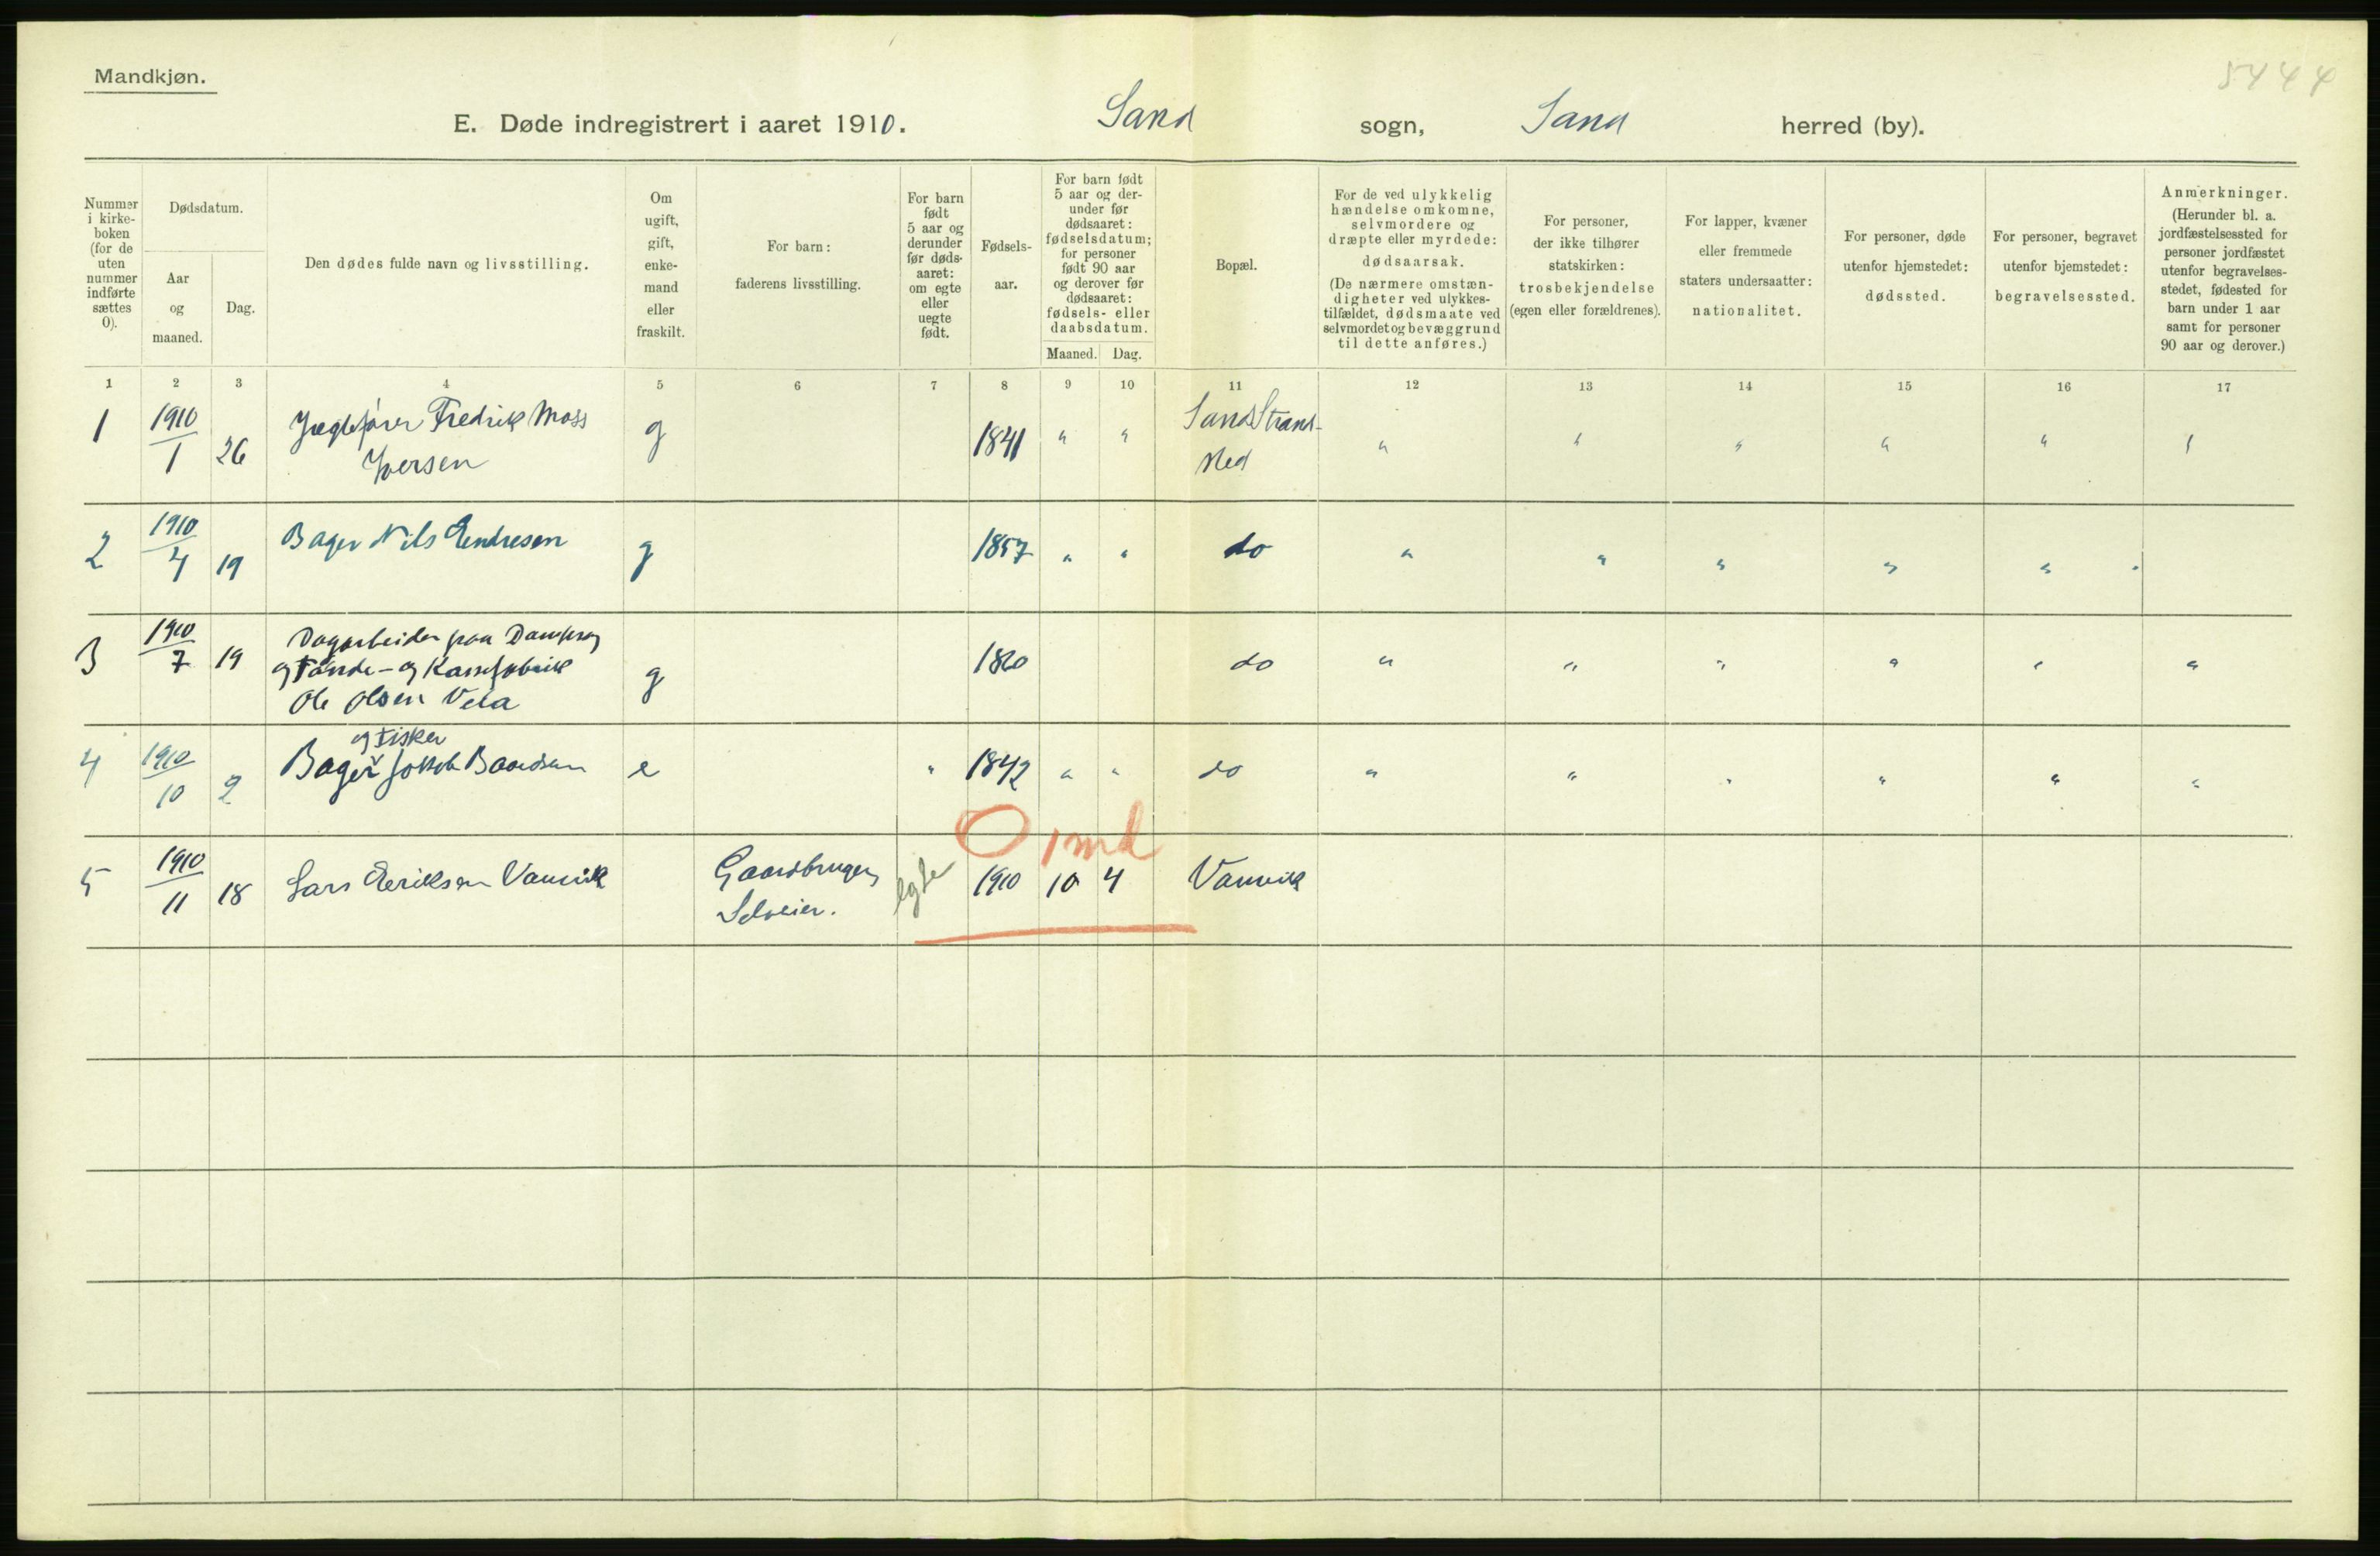 Mandkjøn.
5444
E. Døde indregistrert i aaret 1910. Sand sogn, Sand herred (by).
Nummer i kirke-boken (for de uten nummer indførte sættes 0).
Dødsdatum.
Aar og maaned.
Dag.
Den dødes fulde navn og livsstilling.
Om ugift, gift, enke-mand eller fraskilt.
For barn: faderens livsstilling.
For barn født 5 aar og derunder før døds-aaret: om egte eller uegte født.
Fødsels-aar.
For barn født 5 aar og der-under før dødsaaret: fødselsdatum; for personer født 90 aar og derover før dødsaaret: fødsels- eller daabsdatum.
Maaned. Dag.
Bopæl.
For de ved ulykkelig hændelse omkomne, selvmordere og dræpte eller myrdede: dødsaarsak.
(De nærmere omstæn-digheter ved ulykkes-tilfældet, dødsmaate ved selvmordet og bevæggrund til dette anføres.)
For personer, der ikke tilhører statskirken: trosbekjendelse (egen eller forældrenes).
For lapper, kvæner eller fremmede staters undersaatter: nationalitet.
For personer, døde utenfor hjemstedet: dødssted.
For personer, begravet utenfor bjemstedet: begravelsessted.
Anmerkninger.
(Herunder bl. a. jordfæstelsessted for personer jordfæstet utenfor begravelses-stedet, fødested for barn under 1 aar samt for personer 90 aar og derover.)
1 2 3 4 5 6 7 8 9 10 11 12 13 14 15 16 17
1 1910/1 26 Jægtefører Fredrik Moss g 1841 " " Sand Strand- " " " " " "
Iversen sted
2 1910/4 19 Bager Nils Endresen g 1857 " " do " " " " "
3 1910/7 19 Dagarbeider paa Dampsag
og Tønde- og Kassefabrik g 1860 do " " " " " "
Ole Olsen Vela
og Fisker
4 1910/10 2 Bager Jakob Baardsen e " 1842 " " do " " " " " "
0 1 md
5 1910/11 18 Lars Eeriksen Vanvik Gaardbruger, egte 1910 10 4 Vanvik
Selveier.